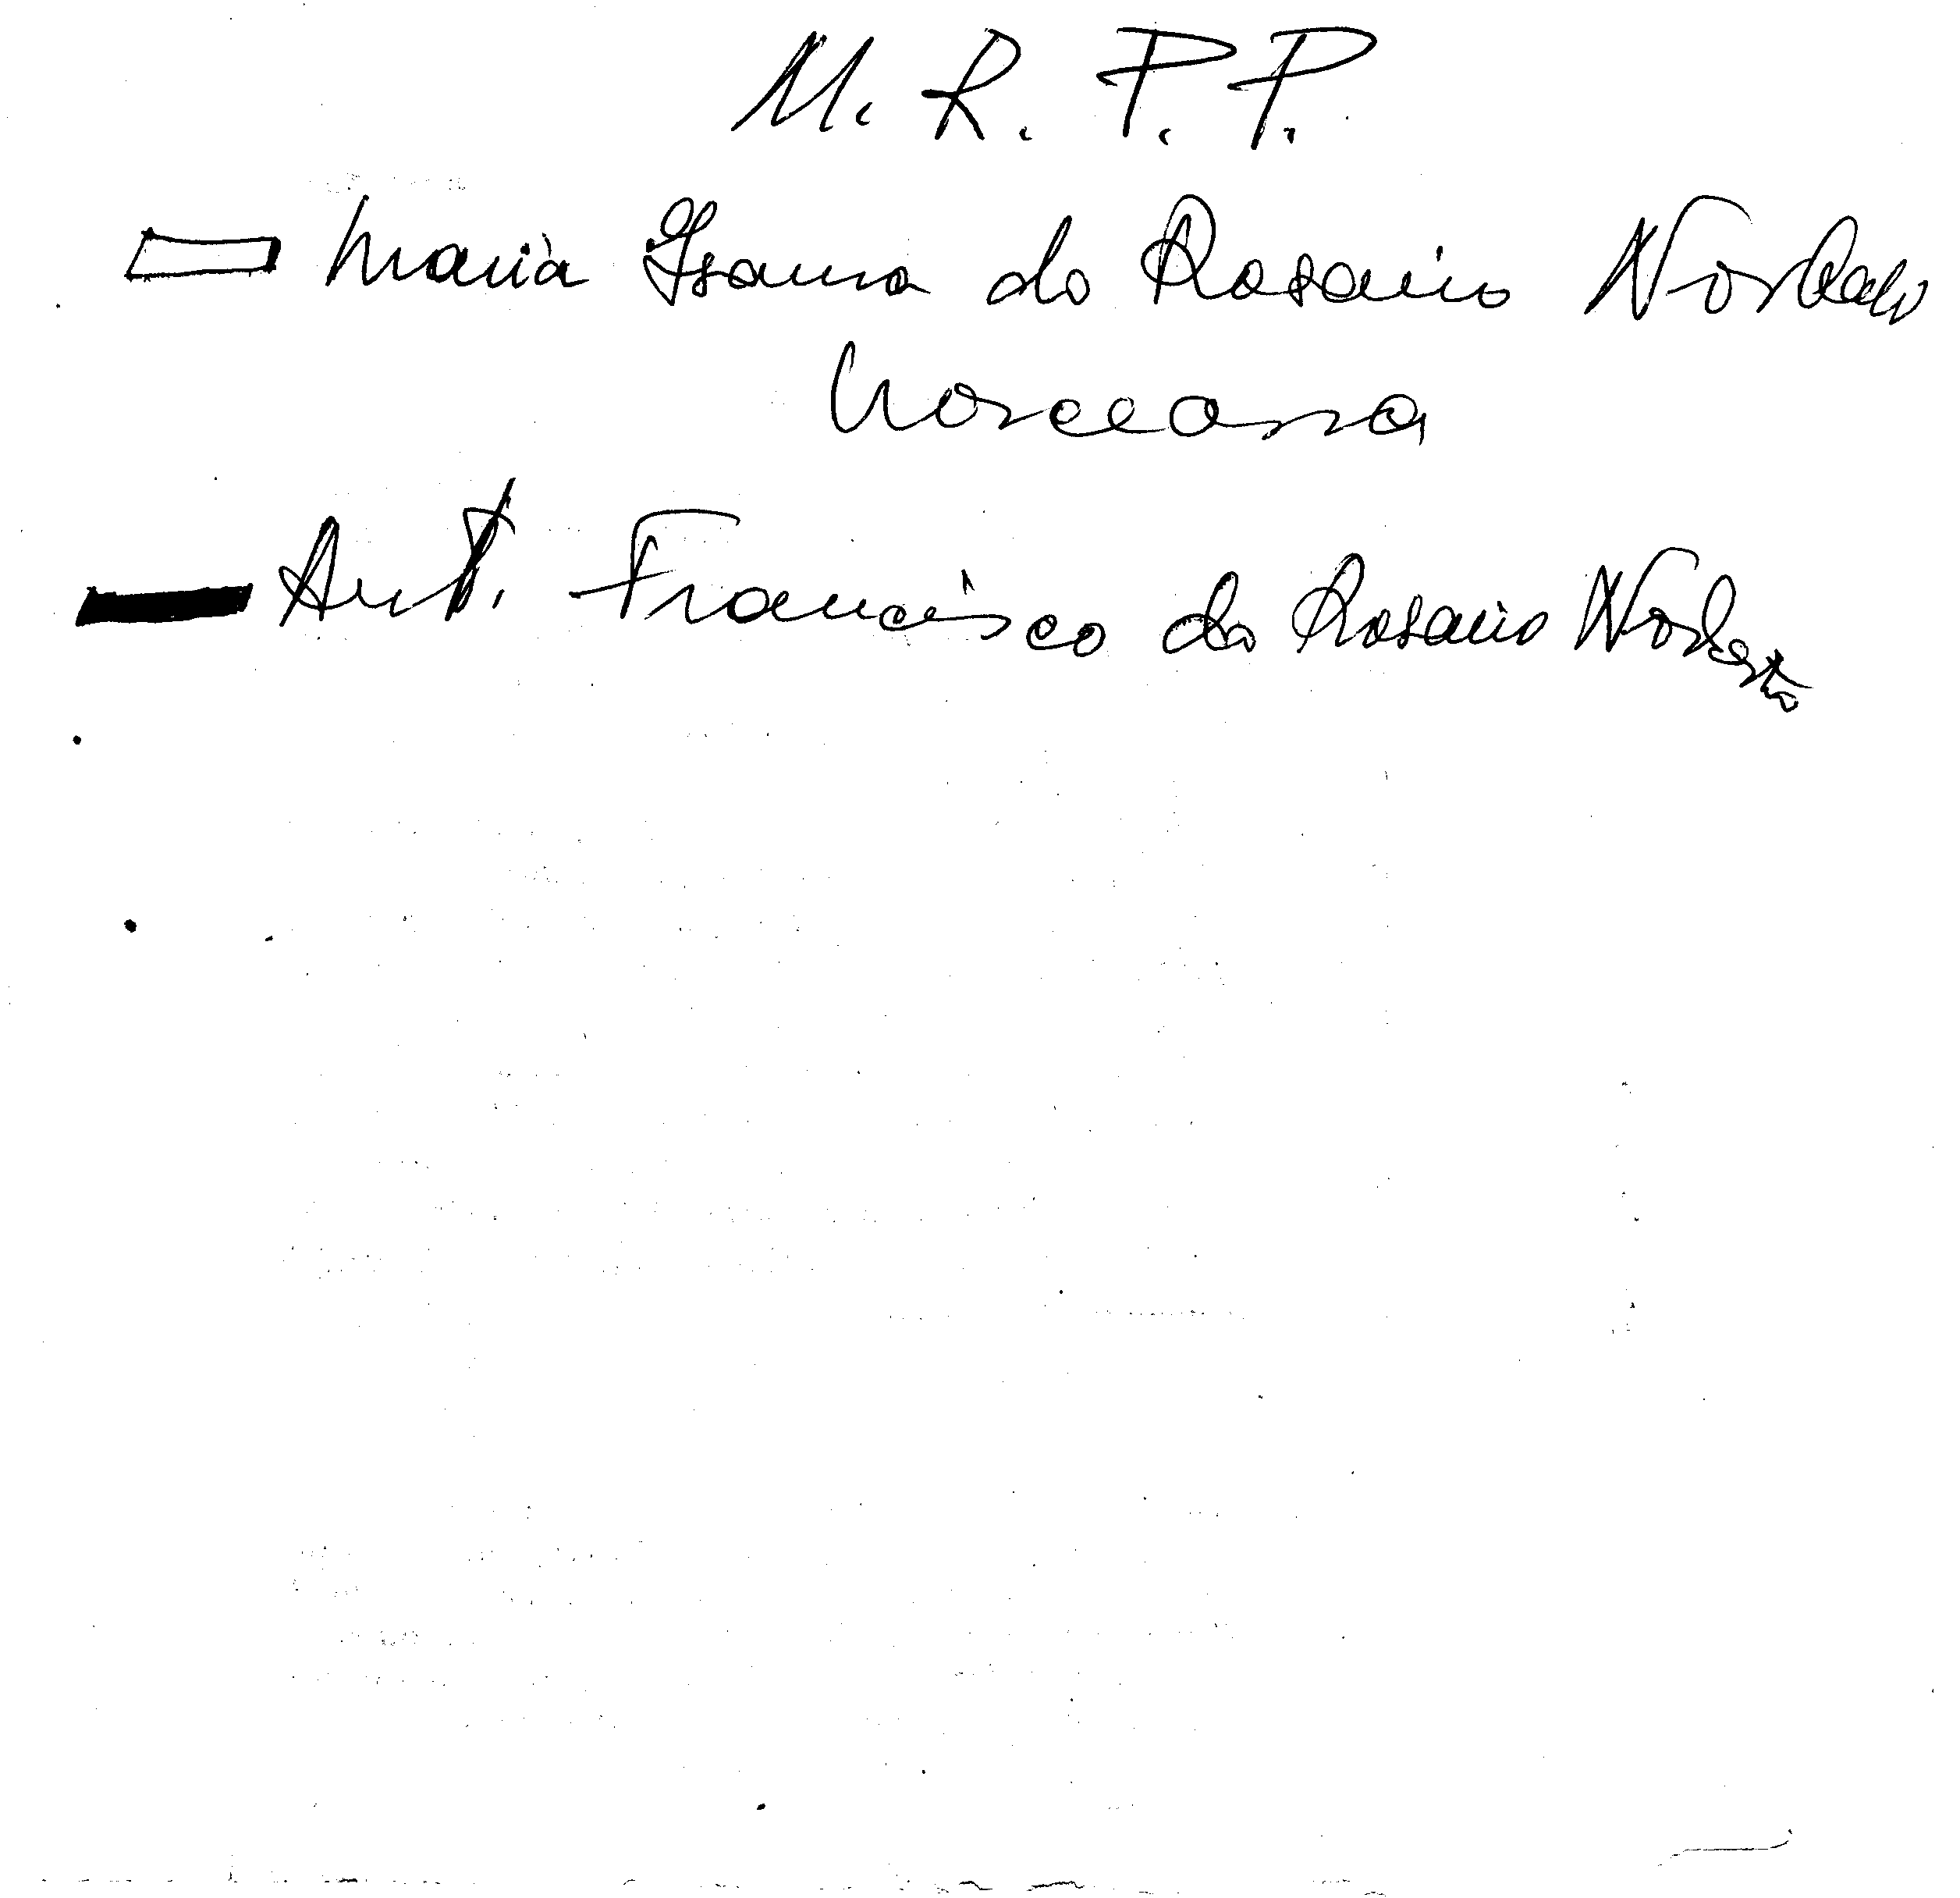 M. R. P. P.
Maria Isaura do Rosario Norberto
Ant. Francisco do Rosario Norberto